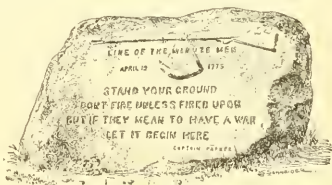 LINE OF THE MINUTE MEN
APRIL 19 1775
STAND YOUR GROUND
DON'T FIRE UNLESS FIRED UPON
BUT IF THEY MEAN TO HAVE A WAR
LET IT BEGIN HERE
CAPTAIN PARKER